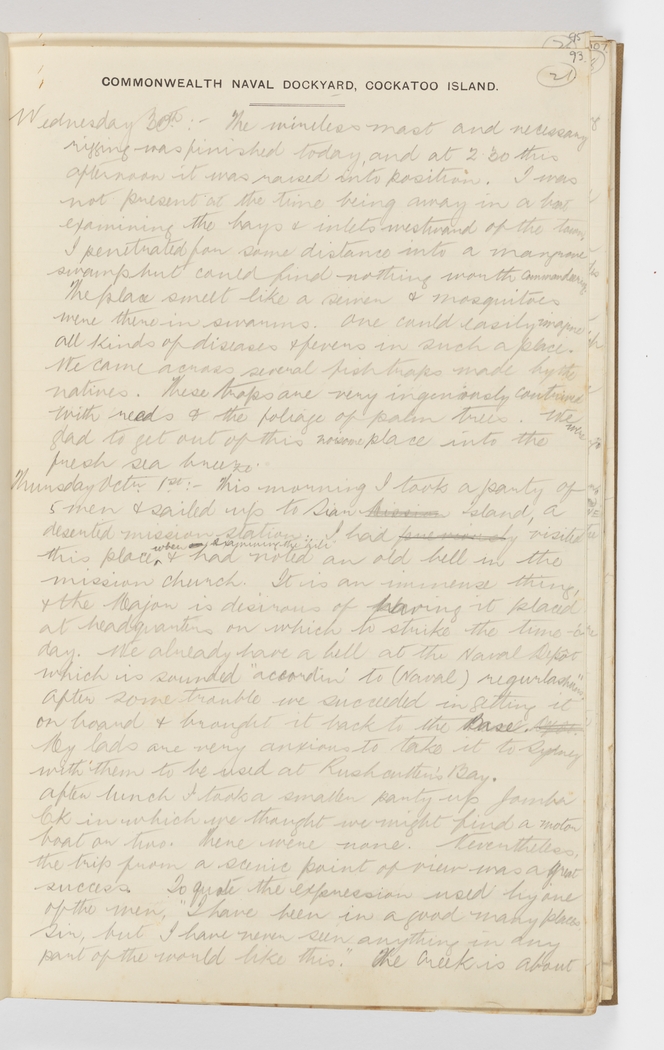 95
93
21
COMMONWEALTH NAVAL DOCKYARD, COCKATOO ISLAND.
Wednesday 30th :- The wireless mast and necessary
rigging was finished today, and at 2.30 this
afternoon it was raised into position. I was
not present at the time being away in a boat
examining the bays & inlets westward of the town.
I penetrated for some distance into a mangrove
swamp but could find nothing worth commandeering.
The place smelt like a sewer & mosquitoes
were there in swarms. One could easily imagine
all kinds of diseases & fevers in such a place.
We came across several fish traps made by the
natives. These traps are very ingeniously contrived
with reeds & the foliage of palm trees. We were
glad to get out of this noisome place into the
fresh sea breeze.
Thursday Octr. 1st :- This morning I took a party of
5 men & sailed up to Siar Mission Island, a
deserted mission station. I had previously visited
this place, when examining the & had noted an old bell in the
mission church. It is an immense thing,
& the Major is desirous of having it placed
at headquarters on which to strike the time of
day. We already have a bell at the Naval Depôt
which is sounded "accordin' to (Naval) regurlashun".
After some trouble we succeeded in getting it
on board & brought it back to the Base.
My lads are very anxious to take it to Sydney
with them to be used at Rushcutter's Bay.
After lunch I took a smaller party up Jomba
Ck in which we thought we might find a motor
boat or two. There were none. Nevertheless,
the trip from a scenic point of view was a great
success. To quote the expression used by one
of the men, "I have been in a good many places,
Sir, but I have never seen anything in any
part of the world like this." The Creek is about